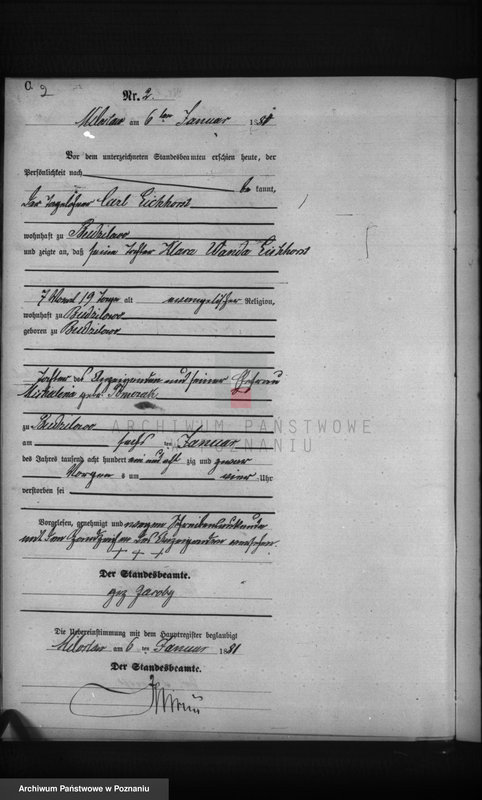 2
Nr. 2.
Miloslaw am 6 ten Januar 1881
Vor dem unterzeichneten Standesbeamten erschien heute, der
Persönlichkeit nach be kannt,
der Tagelöhner Carl Eichhorst
wohnhaft zu Budzilowo
und zeigte an, daß seine Tochter Klara Wanda Eichhorst
7 Monat 19 Tage alt evangelischer Religion,
wohnhaft zu Budzilowo
geboren zu Budzilowo
Tochter des Anzeigenden und seiner Ehefrau
Michalina geb.
zu Budzilowo
am sechs ten Januar
des Jahres tausend acht hundert ein und acht zig und zwar
Morgen s um vier Uhr
verstorben sei
Vorgelesen, genehmigt und wegen Schreibensunkunde
mit dem Handzeichen des Anzeigenden versehen.
+ + +
Der Standesbeamte.
gez Jacoby
Die Uebereinstimmung mit dem Hauptregister beglaubigt
Miloslaw am 6 ten Januar 1881
Der Standesbeamte.
ARCHIWUM PAŃSTWOWE
W POZNANIU
Archiwum Państwowe w Poznaniu